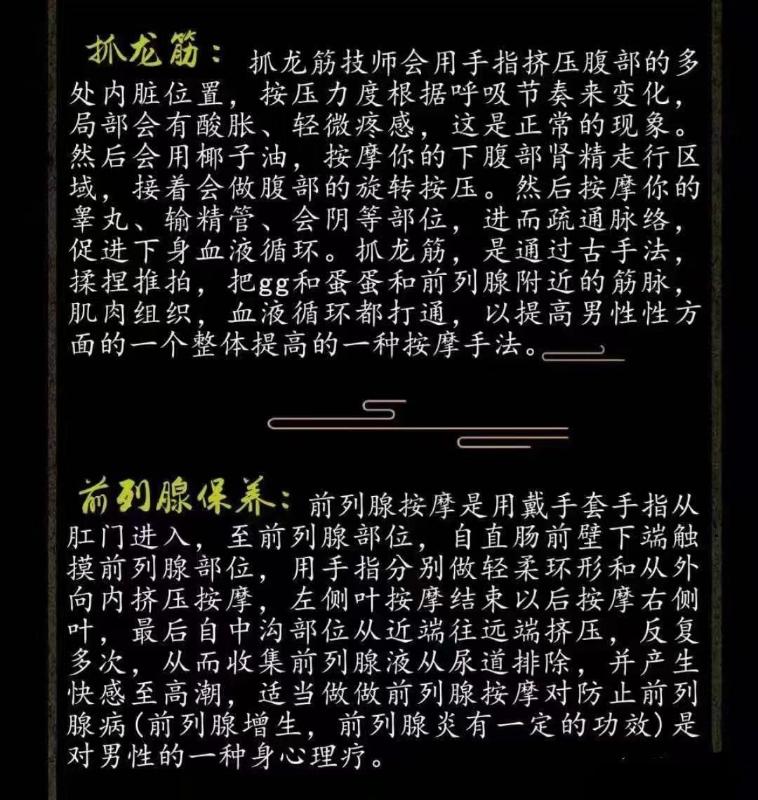 抓龙筋：抓龙筋技师会用手指挤压腹部的多
处内脏位置，按压力度根据呼吸节奏来变化，
局部会有酸胀、轻微疼感，这是正常的现象。
然后会用椰子油，按摩你的下腹部肾精走行区
域，接着会做腹部的旋转按压。然后按摩你的
睾丸、输精管、会阴等部位，进而疏通脉络，
促进下身血液循环。抓龙筋，是通过古手法，
揉捏推拍，把gg和蛋蛋和前列腺附近的筋脉，
肌肉组织，血液循环都打通，以提高男性性方
面的一个整体提高的一种按摩手法。
前列腺保养：前列腺按摩是用戴手套手指从
肛门进入，至前列腺部位，自直肠前壁下端触
摸前列腺部位，用手指分别做轻柔环形和从外
向内挤压按摩，左侧叶按摩结束以后按摩右侧
叶，最后自中沟部位从近端往远端挤压，反复
多次，从而收集前列腺液从尿道排除，并产生
快感至高潮，适当做做前列腺按摩对防止前列
腺病(前列腺增生，前列腺炎有一定的功效)是
对男性的一种身心理疗。